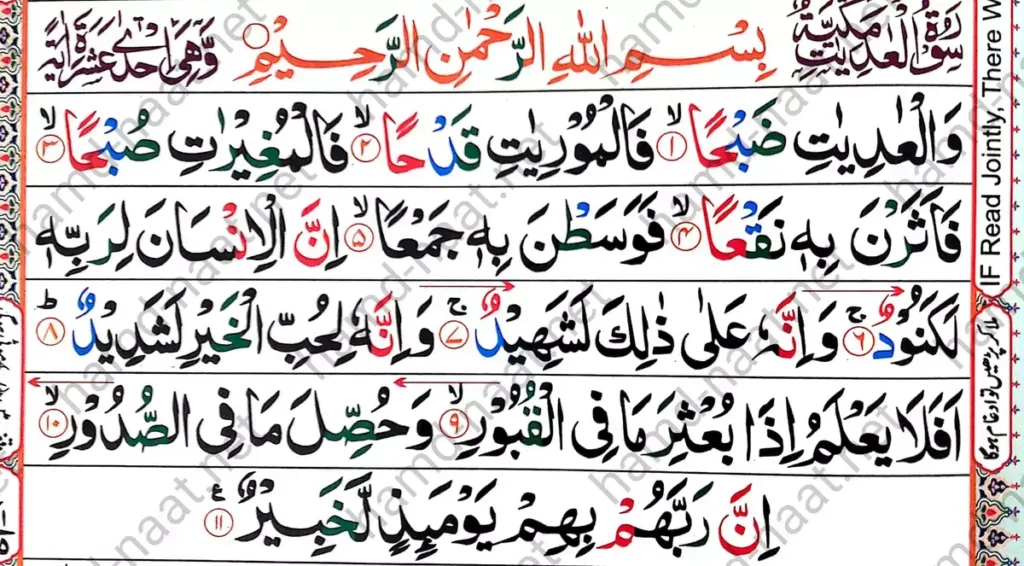 سُوْرَةُ الْعٰدِيٰتِ مَكِّيَّةٌ بِسْمِ اللّٰهِ الرَّحْمٰنِ الرَّحِيْمِ وَّهِيَ اِحْدٰى عَشْرَةَ اٰيَةً
وَالْعٰدِيٰتِ ضَبْحًا ۙ﴿۱﴾ فَالْمُوْرِيٰتِ قَدْحًا ۙ﴿۲﴾ فَالْمُغِيْرٰتِ صُبْحًا ۙ﴿۳﴾
فَاَثَرْنَ بِهٖ نَقْعًا ۙ﴿۴﴾ فَوَسَطْنَ بِهٖ جَمْعًا ۙ﴿۵﴾ اِنَّ الْاِنْسَانَ لِرَبِّهٖ
لَكَنُوْدٌ ۚ﴿۶﴾ وَاِنَّهٗ عَلٰى ذٰلِكَ لَشَهِيْدٌ ۚ﴿۷﴾ وَاِنَّهٗ لِحُبِّ الْخَيْرِ لَشَدِيْدٌ ؕ﴿۸﴾
اَفَلَا يَعْلَمُ اِذَا بُعْثِرَ مَا فِى الْقُبُوْرِ ۙ﴿۹﴾ وَحُصِّلَ مَا فِى الصُّدُوْرِ ۙ﴿۱۰﴾
اِنَّ رَبَّهُمْ بِهِمْ يَوْمَئِذٍ لَّخَبِيْرٌ ﴿۱۱﴾ ع
IF Read Jointly, There W
ملا کر پڑھیں تو ادغام ہوگا
hamd-naat.net